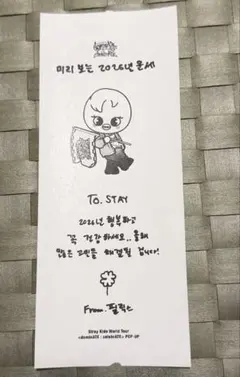 미리 보는 2026년 운세
To. STAY
2026년 행복하고
꼭 건강하세요.. 올해
많은 고민들 해결될 겁니다!
From. 필릭스
Stray Kids World Tour
<dominATE : celebrATE> POP-UP